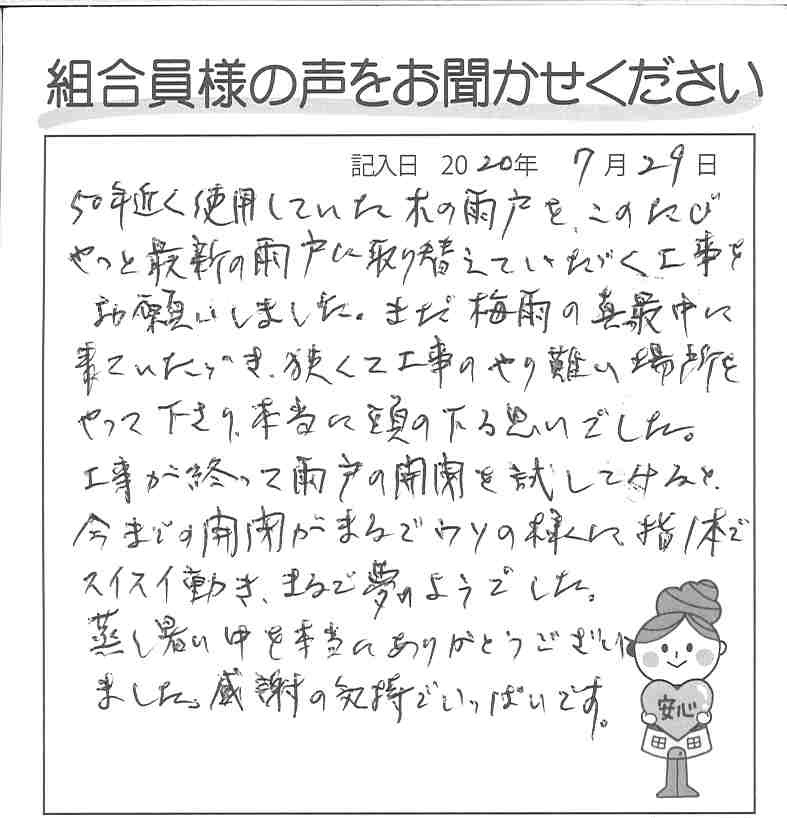 組合員様の声をお聞かせください
記入日 2020年 7月29日
50年近く使用していた木の雨戸を、このたび
やっと最新の雨戸に取り替えていただく工事を
お願いしました。まだ梅雨の真最中に
来ていただき、狭くて工事のやり難い場所を
やって下さり、本当に頭の下る思いでした。
工事が終って雨戸の開閉を試してみると、
今までの開閉がまるでウソの様に、指1本で
スイスイ動き、まるで夢のようでした。
蒸し暑い中を本当にありがとうござい
ました。感謝の気持でいっぱいです。
安心